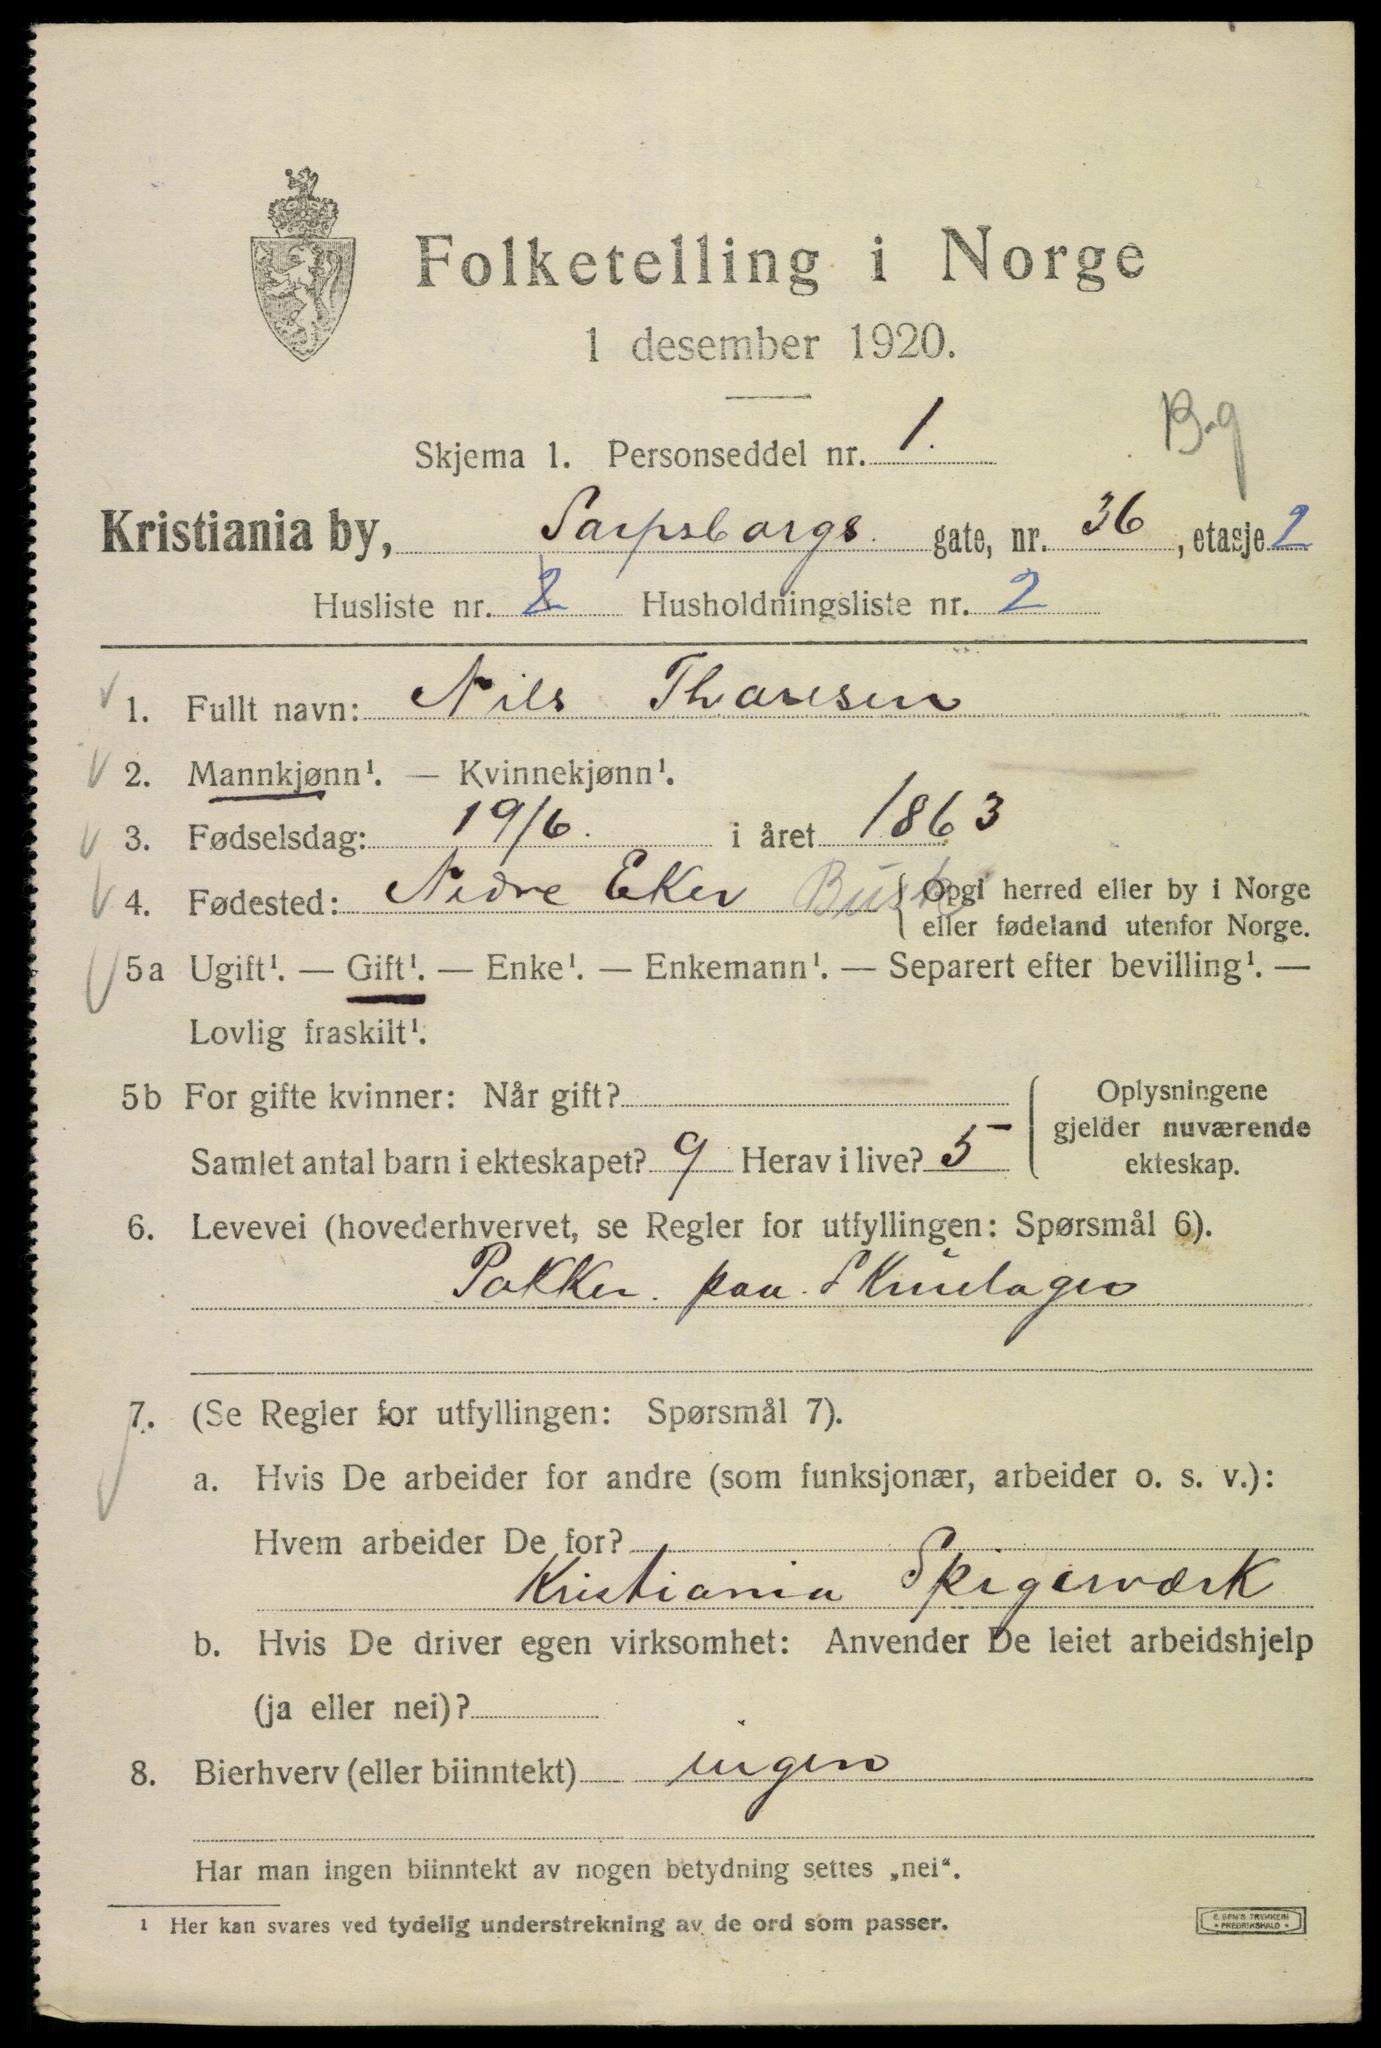 Folketelling i Norge
1 desember 1920.
Skjema 1. Personseddel nr. 1.
B.g
Kristiania by, Sarpsborgs gate, nr. 36, etasje 2
Husliste nr. 2 Husholdningsliste nr. 2
1. Fullt navn: Nils Thoresen
2. Mannkjønn¹. — Kvinnekjønn¹.
3. Fødselsdag: 19/6. i året 1863
4. Fødested: Nedre Eker Busk { Opgi herred eller by i Norge
eller fødeland utenfor Norge.
5a Ugift¹. — Gift¹. — Enke¹. — Enkemann¹. — Separert efter bevilling¹. —
Lovlig fraskilt¹.
5b For gifte kvinner: Når gift?
Samlet antal barn i ekteskapet? 9 Herav i live? 5
Oplysningene
gjelder nuværende
ekteskap.
6. Levevei (hovederhvervet, se Regler for utfyllingen: Spørsmål 6).
Pakker. paa. Skruelager
7. (Se Regler for utfyllingen: Spørsmål 7).
a. Hvis De arbeider for andre (som funksjonær, arbeider o. s. v.):
Hvem arbeider De for?
Kristiania Spigerværk
b. Hvis De driver egen virksomhet: Anvender De leiet arbeidshjelp
(ja eller nei)?
8. Bierhverv (eller biinntekt) ingen
Har man ingen biinntekt av nogen betydning settes „nei“.
¹ Her kan svares ved tydelig understrekning av de ord som passer.
TRYKKERI
• FREDRIKSHALD •